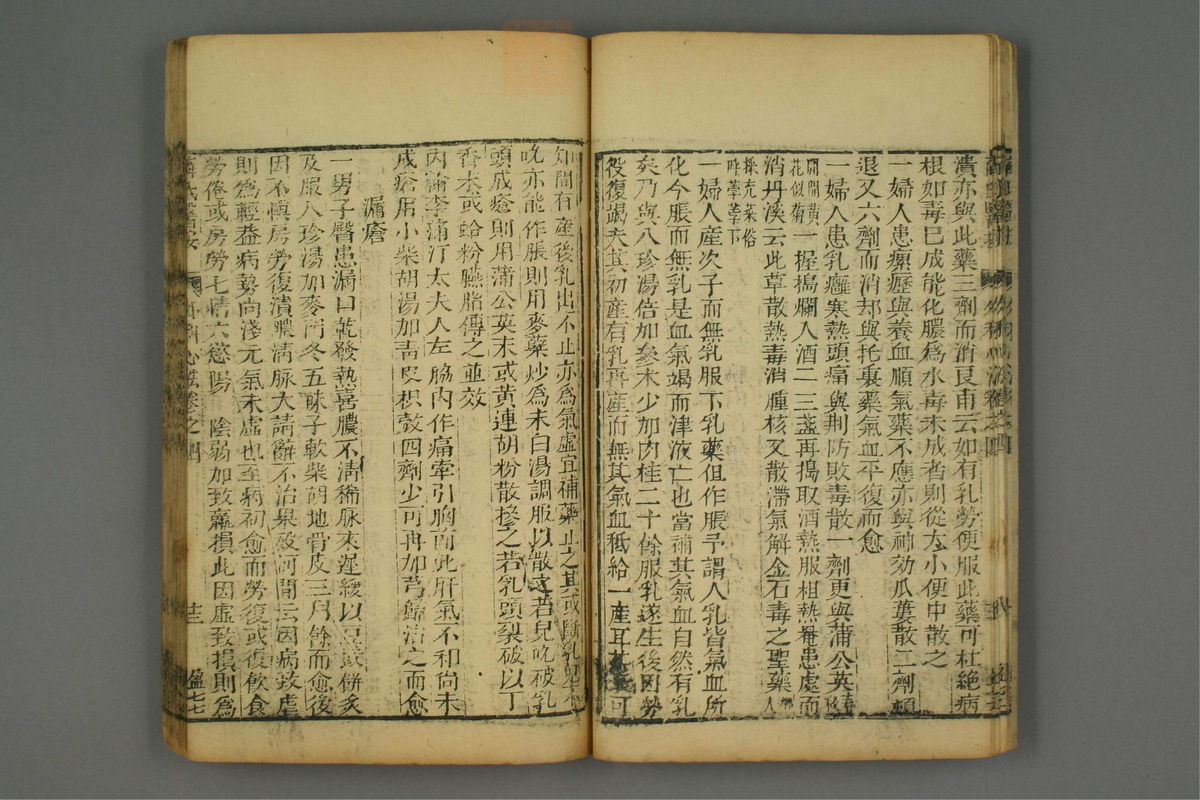 潰亦與此藥三劑而消艮甫云如有乳勞便服此藥可杜絶病
根如毒巳成能化膿爲水毒未成者則從大小便中散之
一婦人患瘰癧與養血順氣藥不應亦與神効瓜蔞散二劑頓
退又六劑而消却與托裏藥氣血平復而愈
一婦人患乳癰寒熱頭痛與荆防敗毒散一劑更與蒲公英春
間開黃花似菊一握搗爛入酒二三盞再搗取酒熱服相熱罨患處而
消丹溪云此草散熱毒消腫核又散滯氣解金石毒之聖藥
採充菜俗呼孛孛丁
一婦人産次子而無乳服下乳藥但作脹予謂人乳皆氣血所
化今脹而無乳是血氣竭而津液亡也當補其氣血自然有乳
矣乃與八珍湯倍加參朮少加肉桂二十餘服乳遂生後因勞
役復竭夫其初産有乳再産而無其氣血秪給一産耳其可
如間有産後乳出不止亦爲氣虛宜補藥止之其或斷乳兒
吮亦能作脹則用麥糵炒爲末白湯調服以散之若兒吮破乳
頭成瘡則用蒲公英末或黃連胡粉散摻之若乳頭裂破以丁
香末或蛤粉臙脂傅之並效
内翰李蒲汀太夫人左脇内作痛牽引胸前此肝氣不和尚未
成瘡用小柴胡湯加青皮枳殼四劑少可再加芎歸治之而愈
漏瘡
一男子臀患漏口乾發熱喜膿不清稀脉來遲緩以豆豉餅灸
及服八珍湯加麥門冬五味子軟柴胡地骨皮三月餘而愈後
因不慎房勞復潰膿清脉大請辭不治果歿河間云因病致虛
則爲輕葢病勢尚淺元氣未虛也至病初愈而勞復或復飮食
勞倦或房勞七情六慾陽 陰弱加致羸損此因虛致損則爲
卷之四
十三
盈七七